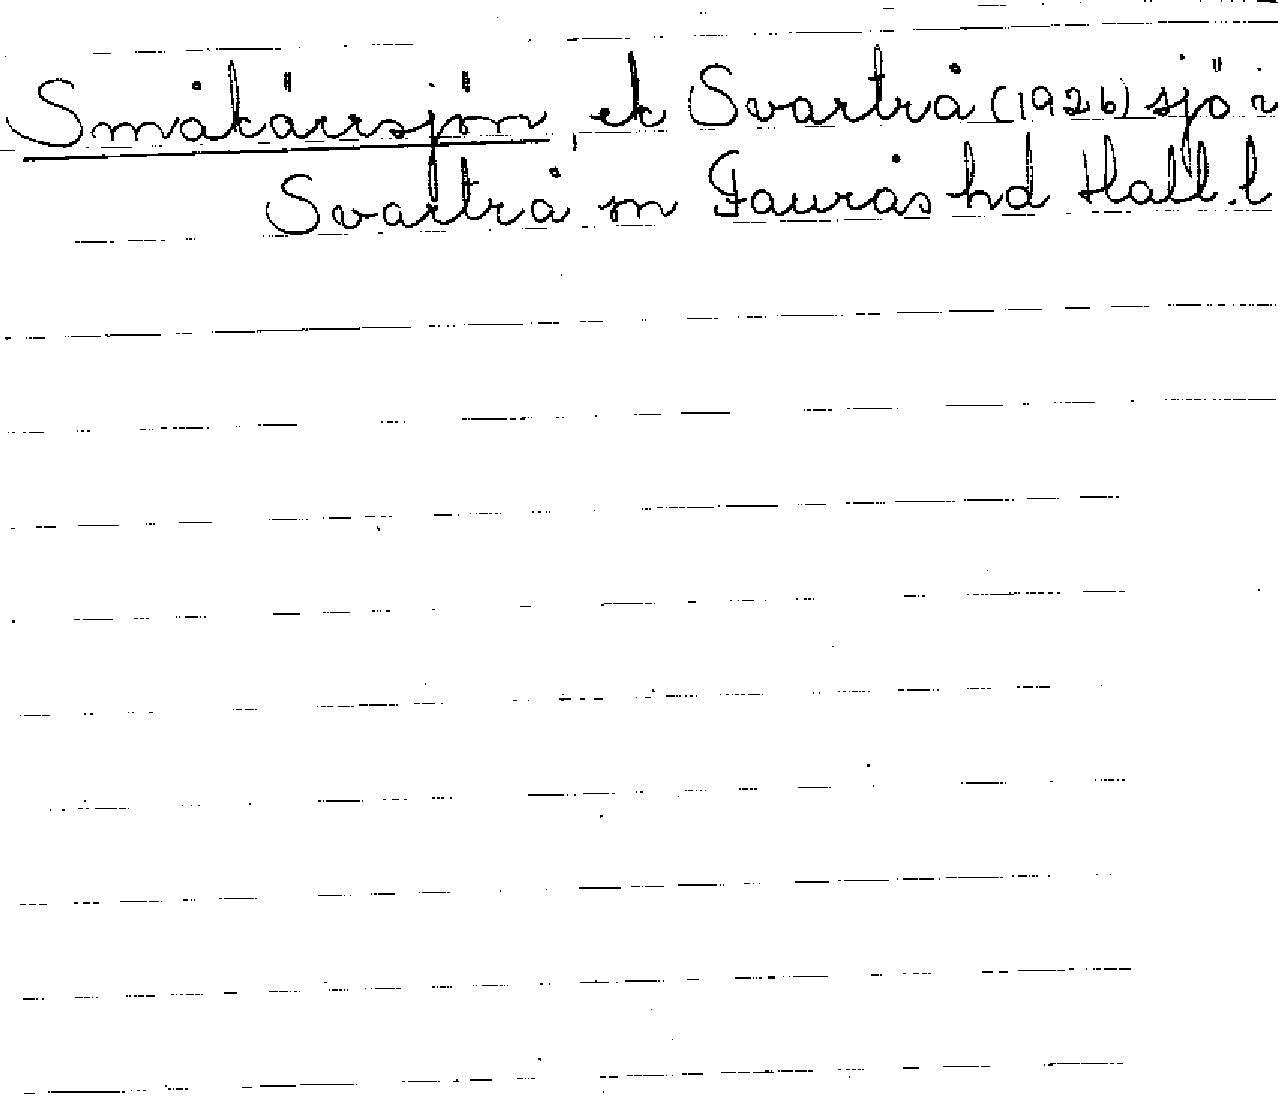 Småkärrsjön, ek Svartrå (1926) sjö i
Svartrå sn Faurås hd Hall. l